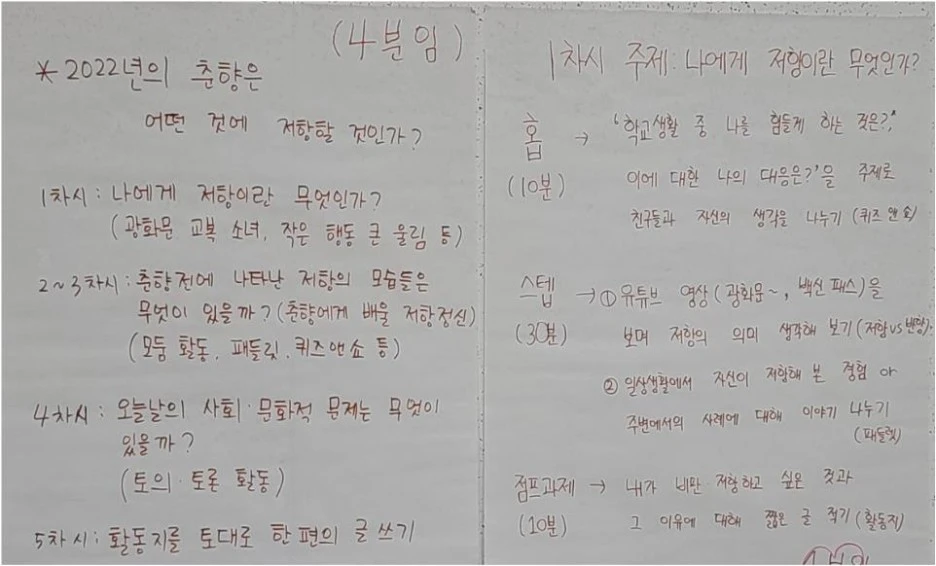 (4분임)
* 2022년의 춘향은
어떤 것에 저항할 것인가?
1차시 : 나에게 저항이란 무엇인가?
(광화문 교복 소녀, 작은 행동 큰 울림 등)
2~3차시 : 춘향전에 나타난 저항의 모습들은
무엇이 있을까? (춘향에게 배울 저항정신)
(모둠 활동, 패들릿, 퀴즈앤쇼 등)
4차시 : 오늘날의 사회·문화적 문제는 무엇이
있을까?
(토의·토론 활동)
5차시 : 활동지를 토대로 한 편의 글쓰기
1차시 주제: 나에게 저항이란 무엇인가?
홉 → '학교생활 중 나를 힘들게 하는 것은?,'
(10분) 이에 대한 나의 대응은?'을 주제로
친구들과 자신의 생각을 나누기 (퀴즈앤쇼)
스텝 → ① 유튜브 영상(광화문~, 백신패스)을
(30분) 보며 저항의 의미 생각해 보기(저항vs반항).
② 일상생활에서 자신이 저항해 본 경험 or
주변에서의 사례에 대해 이야기 나누기
(패들릿)
점프과제 → 내가 저항하고 싶은 것과
(10분) 그 이유에 대해 짧은 글 적기 (활동지)